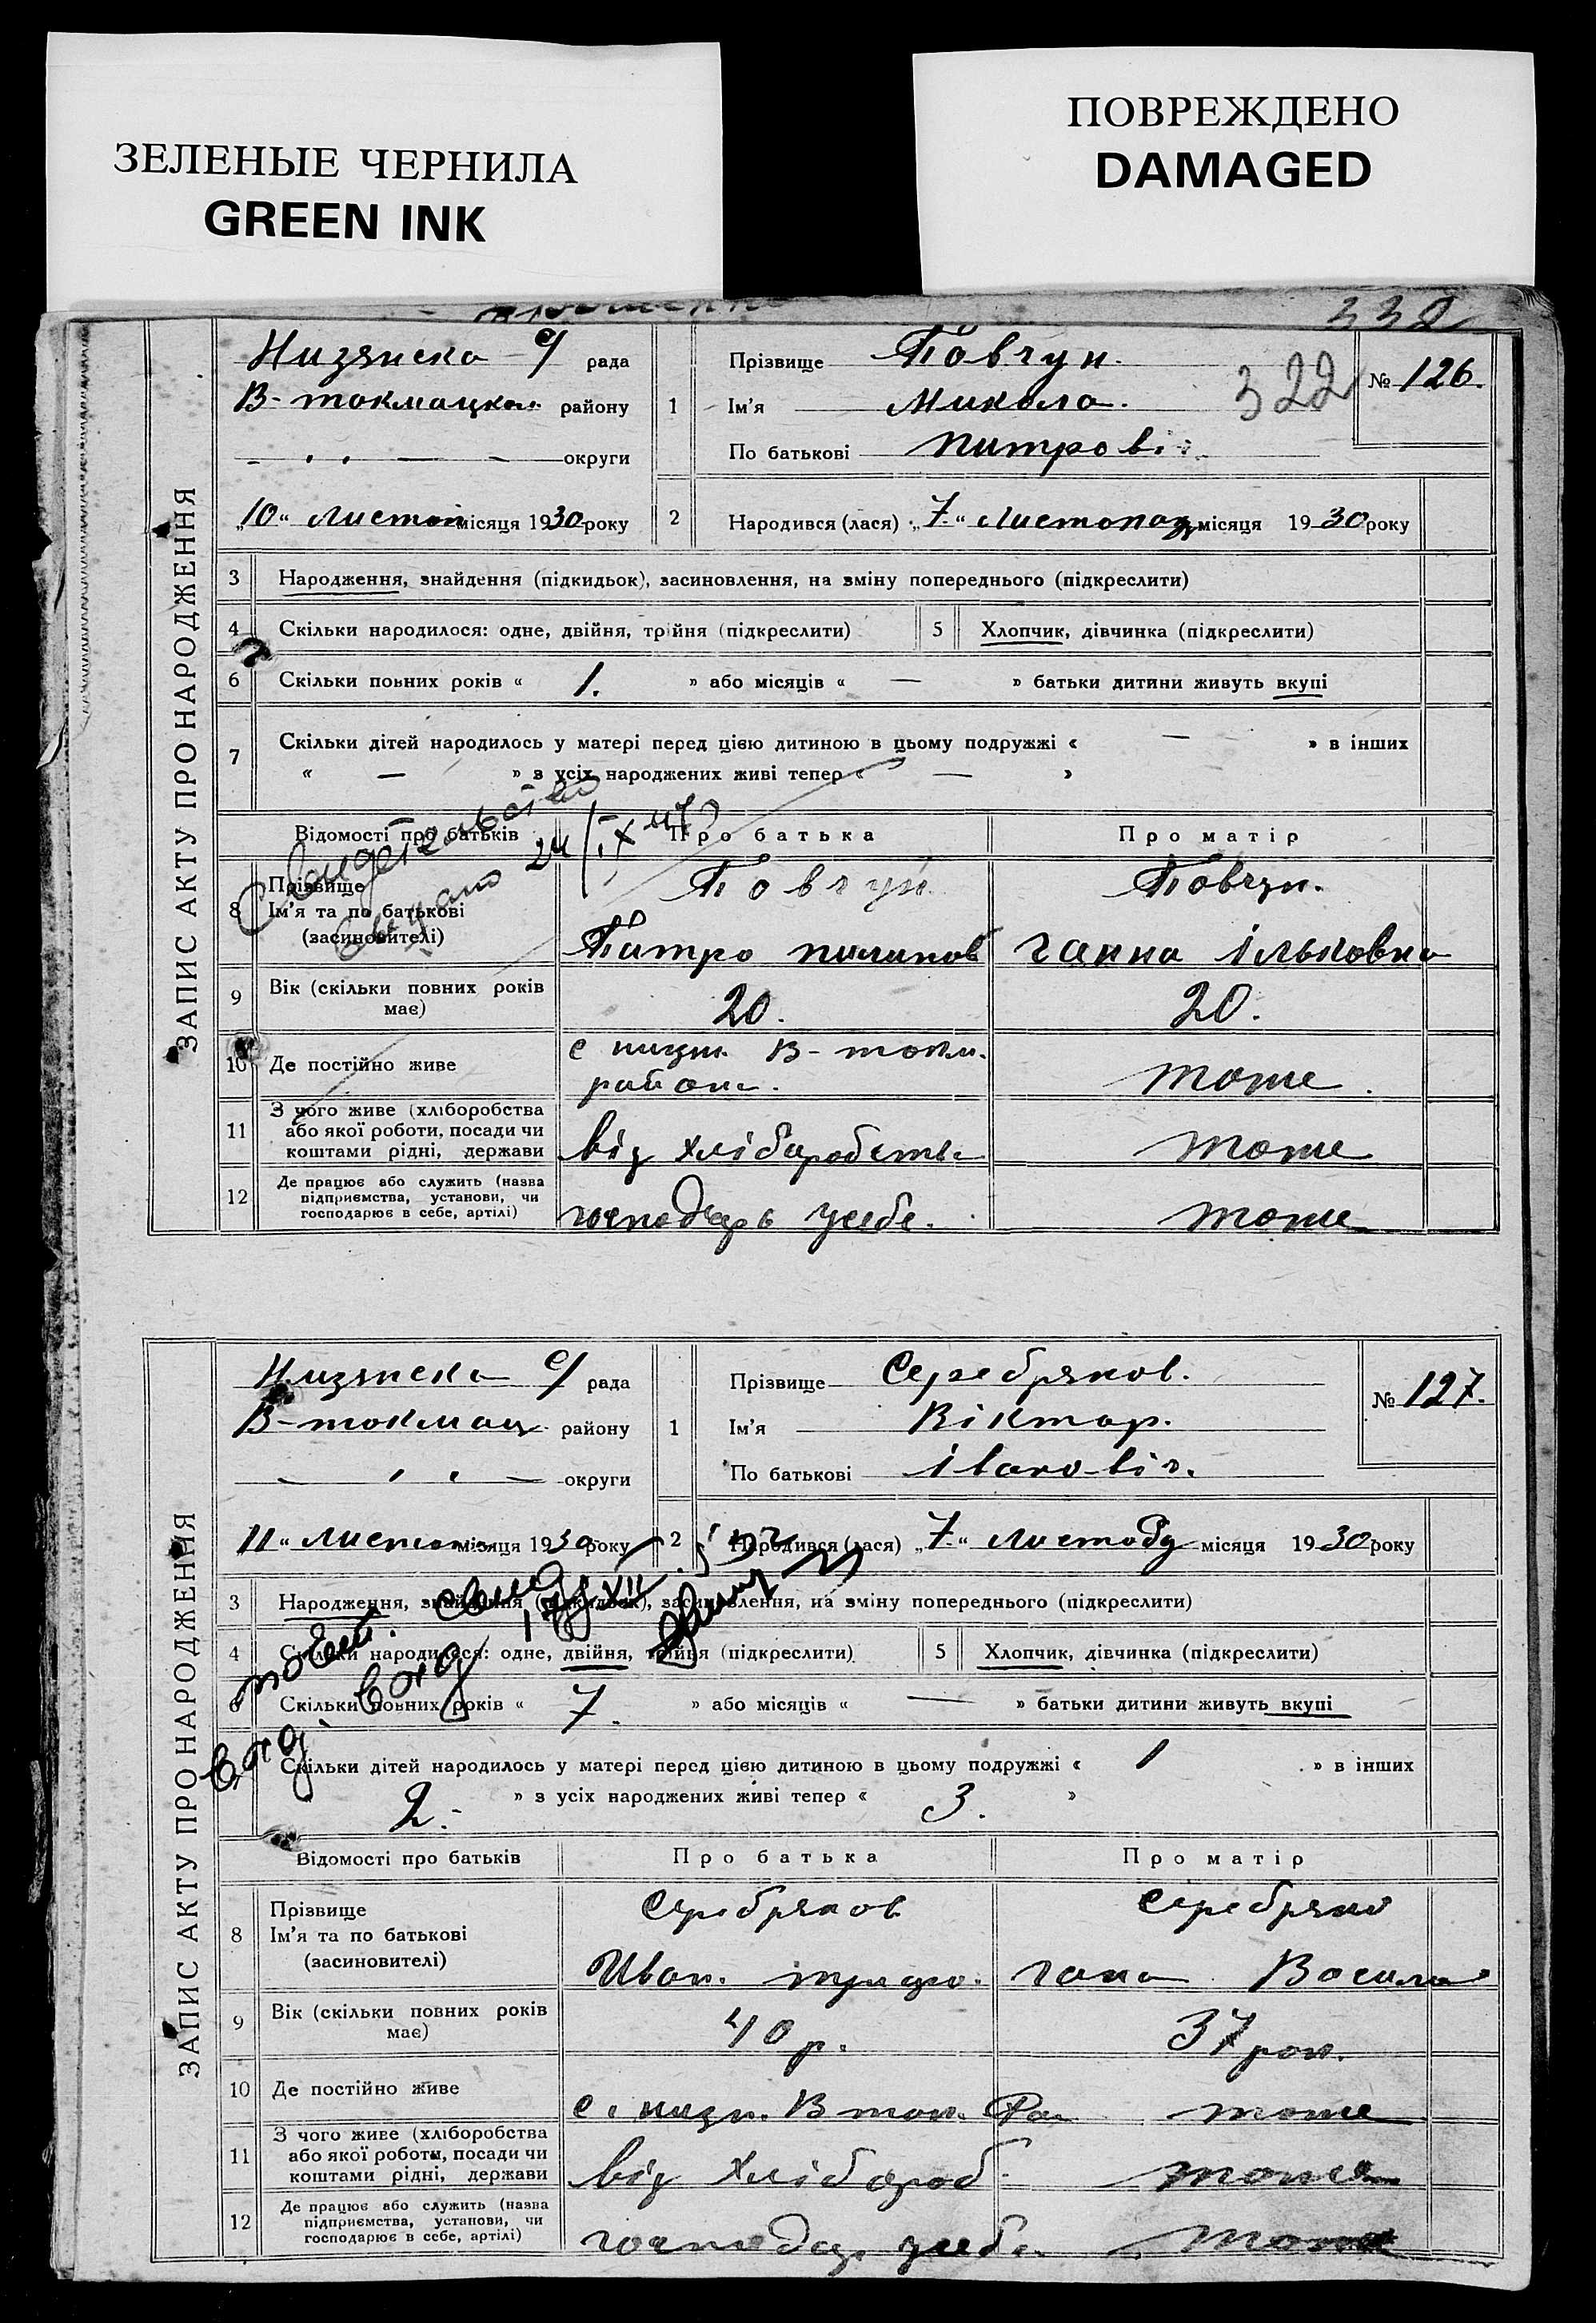 ЗЕЛЕНЫЕ ЧЕРНИЛА
GREEN INK
ПОВРЕЖДЕНО
DAMAGED
332
322
ЗАПИС АКТУ ПРО НАРОДЖЕННЯ
Низянска с/ рада
В-токмацком району
округи
„10“ Листоп місяця 1930 року
1 Прізвище Повчун.
Ім'я Микола.
По батькові Питрові
№ 126.
2 Народився (лася) „7“ Листопад місяця 1930 року
3 Народження, знайдення (підкидьок), засиновлення, на зміну попереднього (підкреслити)
4 Скільки народилося: одне, двійня, трійня (підкреслити) 5 Хлопчик, дівчинка (підкреслити)
6 Скільки повних років « 1. » або місяців « — » батьки дитини живуть вкупі
7 Скільки дітей народилось у матері перед цією дитиною в цьому подружжі « — » в інших
« — » з усіх народжених живі тепер « — »
Відомості про батьків Про батька Про матір
8 Прізвище Повчун Повчун.
Ім'я та по батькові
(засиновителі) Питро пилипов ганна ільковна
9 Вік (скільки повних років має) 20. 20.
10 Де постійно живе с низян. В-токм. районе. тоже.
11 З чого живе (хліборобства
або якої роботи, посади чи
коштами рідні, держави від хліборобства тоже
12 Де працює або служить (назва
підприємства, установи, чи
господарює в себе, артілі) господарь усебе. тоже
Свидетельство
выдано 24/IX 47
ЗАПИС АКТУ ПРО НАРОДЖЕННЯ
Низянска с/ рада
В-токмац. району
округи
„11“ Листопа місяця 1930 року
1 Прізвище Серебряков.
Ім'я Віктор.
По батькові івановіч.
№ 127.
2 Народився (лася) „7“ Листопад місяця 1930 року
3 Народження, знайдення (підкидьок), засиновлення, на зміну попереднього (підкреслити)
4 Скільки народилося: одне, двійня, трійня (підкреслити) 5 Хлопчик, дівчинка (підкреслити)
6 Скільки повних років « 7. » або місяців « — » батьки дитини живуть вкупі
Скільки дітей народилось у матері перед цією дитиною в цьому подружжі « 1 » в інших
2. » з усіх народжених живі тепер « 3. »
Відомості про батьків Про батька Про матір
8 Прізвище Серебряков Серебряко
Ім'я та по батькові
(засиновителі) Иван. гана Василь
9 Вік (скільки повних років має) 40 р. 37 рок.
10 Де постійно живе с. низян. В ток. Ра тоже
11 З чого живе (хліборобства
або якої роботи, посади чи
коштами рідні, держави від хлібороб тоже
12 Де працює або служить (назва
підприємства, установи, чи
господарює в себе, артілі) господар усебе. тоже